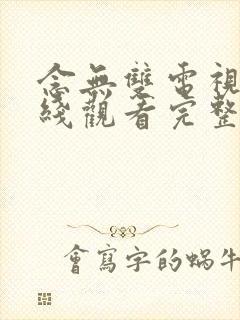 念無雙電視
綫觀看完整
會寫字的蝸牛